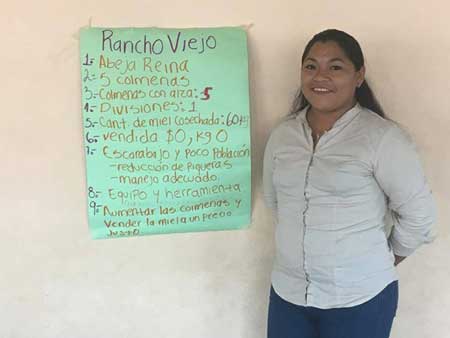 Rancho Viejo
1=Abeja Reina
2=5 colmenas
3=Colmenas con alza:5
4=Divisiones:1
5=Cant. de miel cosechada:60
6=vendida $0, kg 0
7= Escarabajo y poco Población
-reducción de piqueras
-manejo adecuado.
8= Equipo y herramienta
9=Aumentar las colmenas y
vender la miel a un precio
Justo